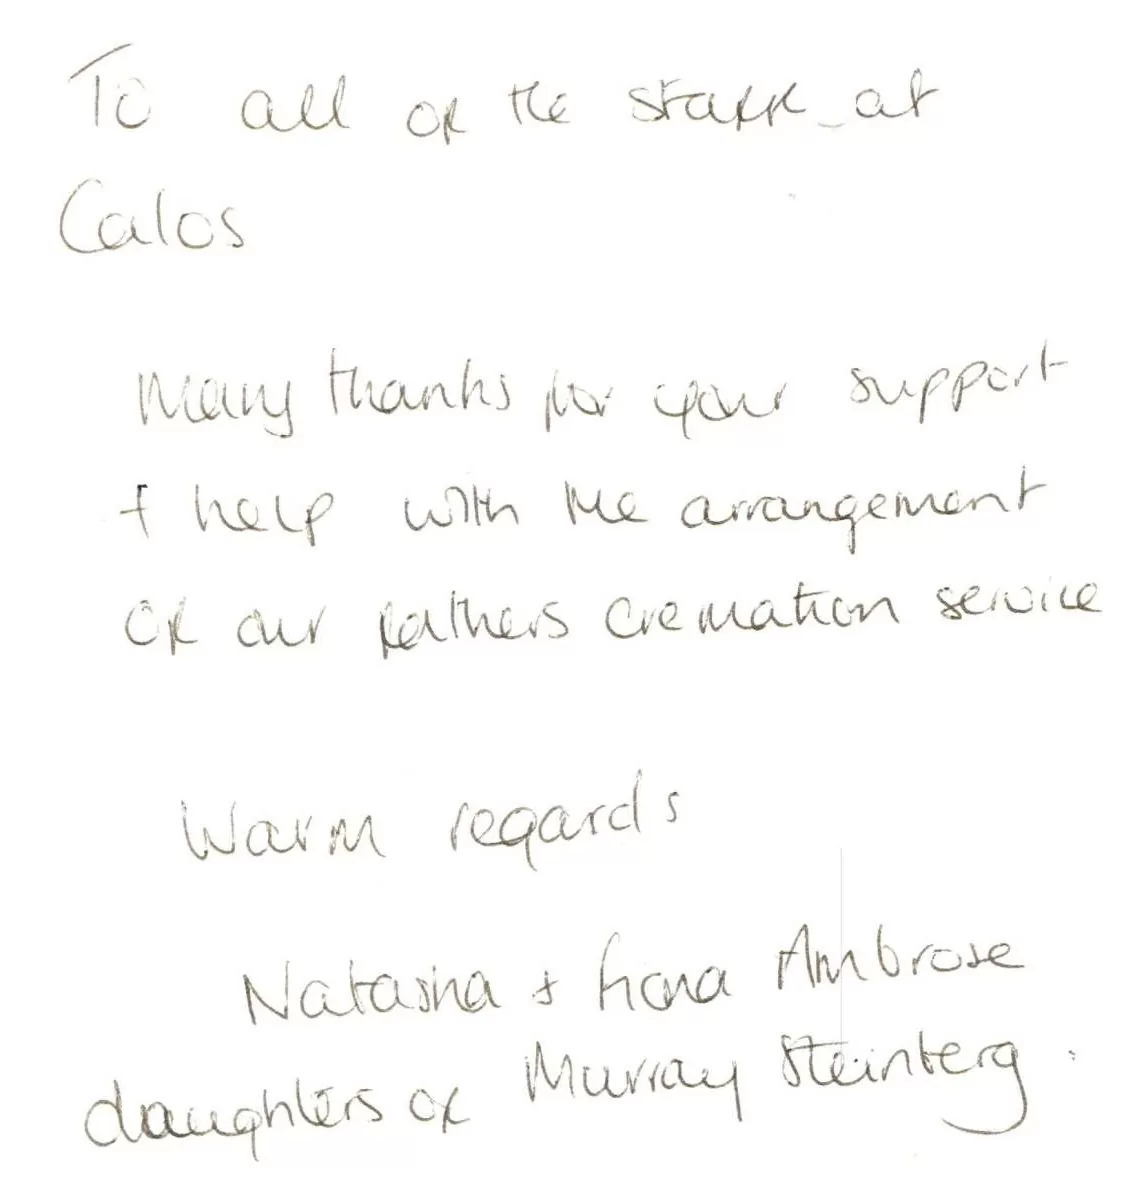 To all of the staff at
Calos
Many thanks for your support
+ help with the arrangement
of our fathers cremation service
Warm regards
Natasha + Fiona Ambrose
daughters of Murray Steinberg.